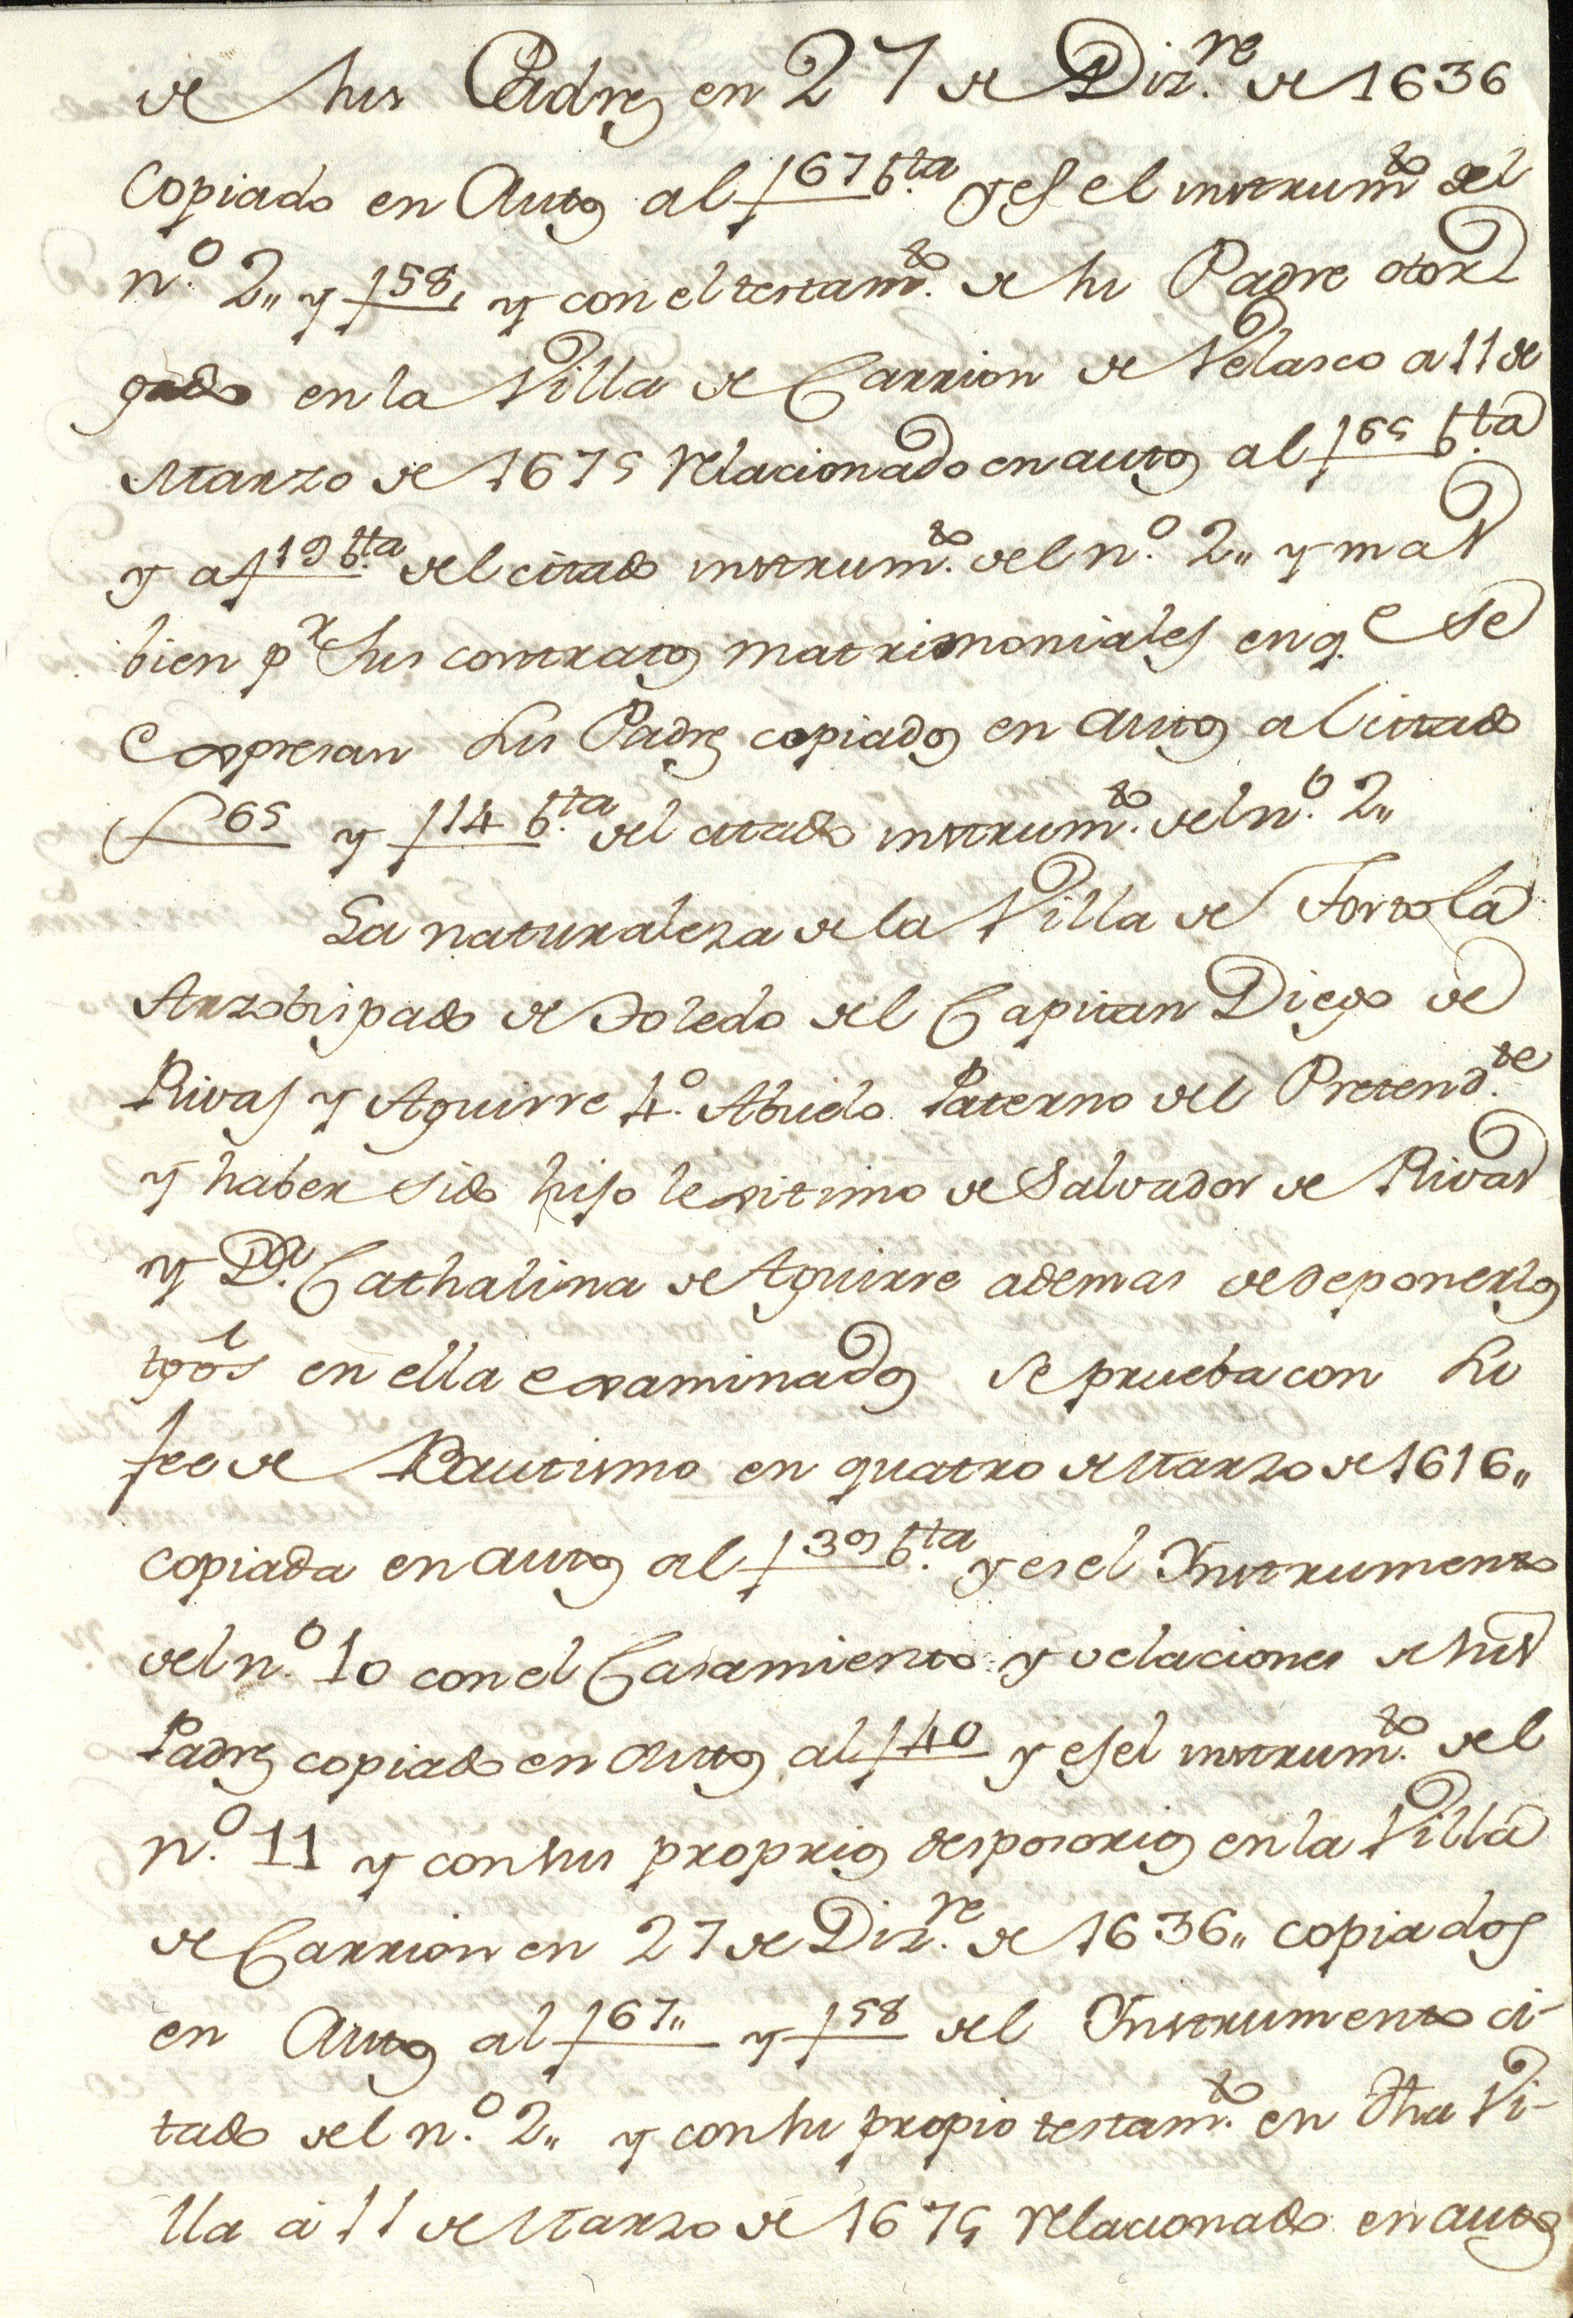 de sus Padres en 27 de Diz.re de 1636
Copiado en Autos al f 67 b.ta y es el instrum.to del
n.o 2,, y f 58, y con el testam.to de su Padre otor
gado en la Villa de Carrion de Velasco a 11 de
Marzo de 1675 relacionado en autos al f 65 b.ta
y a f 19 b.ta del citado instrum.to del n.o 2,, y mas
bien pr sus contratos matrimoniales en q.e se
expresan sus Padres copiados en autos al citado
f 65 y f 14 b.ta del citado instrum.to del n.o 2,,
La naturaleza de la Villa de
Arzobispado de Toledo del Capitan Diego de
Rivas y Aguirre 4.o Abuelo Paterno del Pretend.te
y haber sido hijo lexitimo de Salvador de Rivas
y D.a Cathalina de Aguirre ademas de deponerlo
tgos en ella examinados se prueba con su
fee de Bautismo en quatro de Marzo de 1616,,
copiada en autos al f 39 b.ta y es el Instrumento
del n.o 10 con el Casamiento y velaciones de sus
Padres copiado en autos al f 40 y es el instrum.to del
n.o 11 y con sus proprios desposorios en la Villa
de Carrion en 27 de Diz.re de 1636,, copiados
en Autos al f 67,, y f 58 del Instrumento ci-
tado del n.o 2,, y con su propio testam.to en dha Vi-
lla a 11 de Marzo de 1675 relacionado en autos